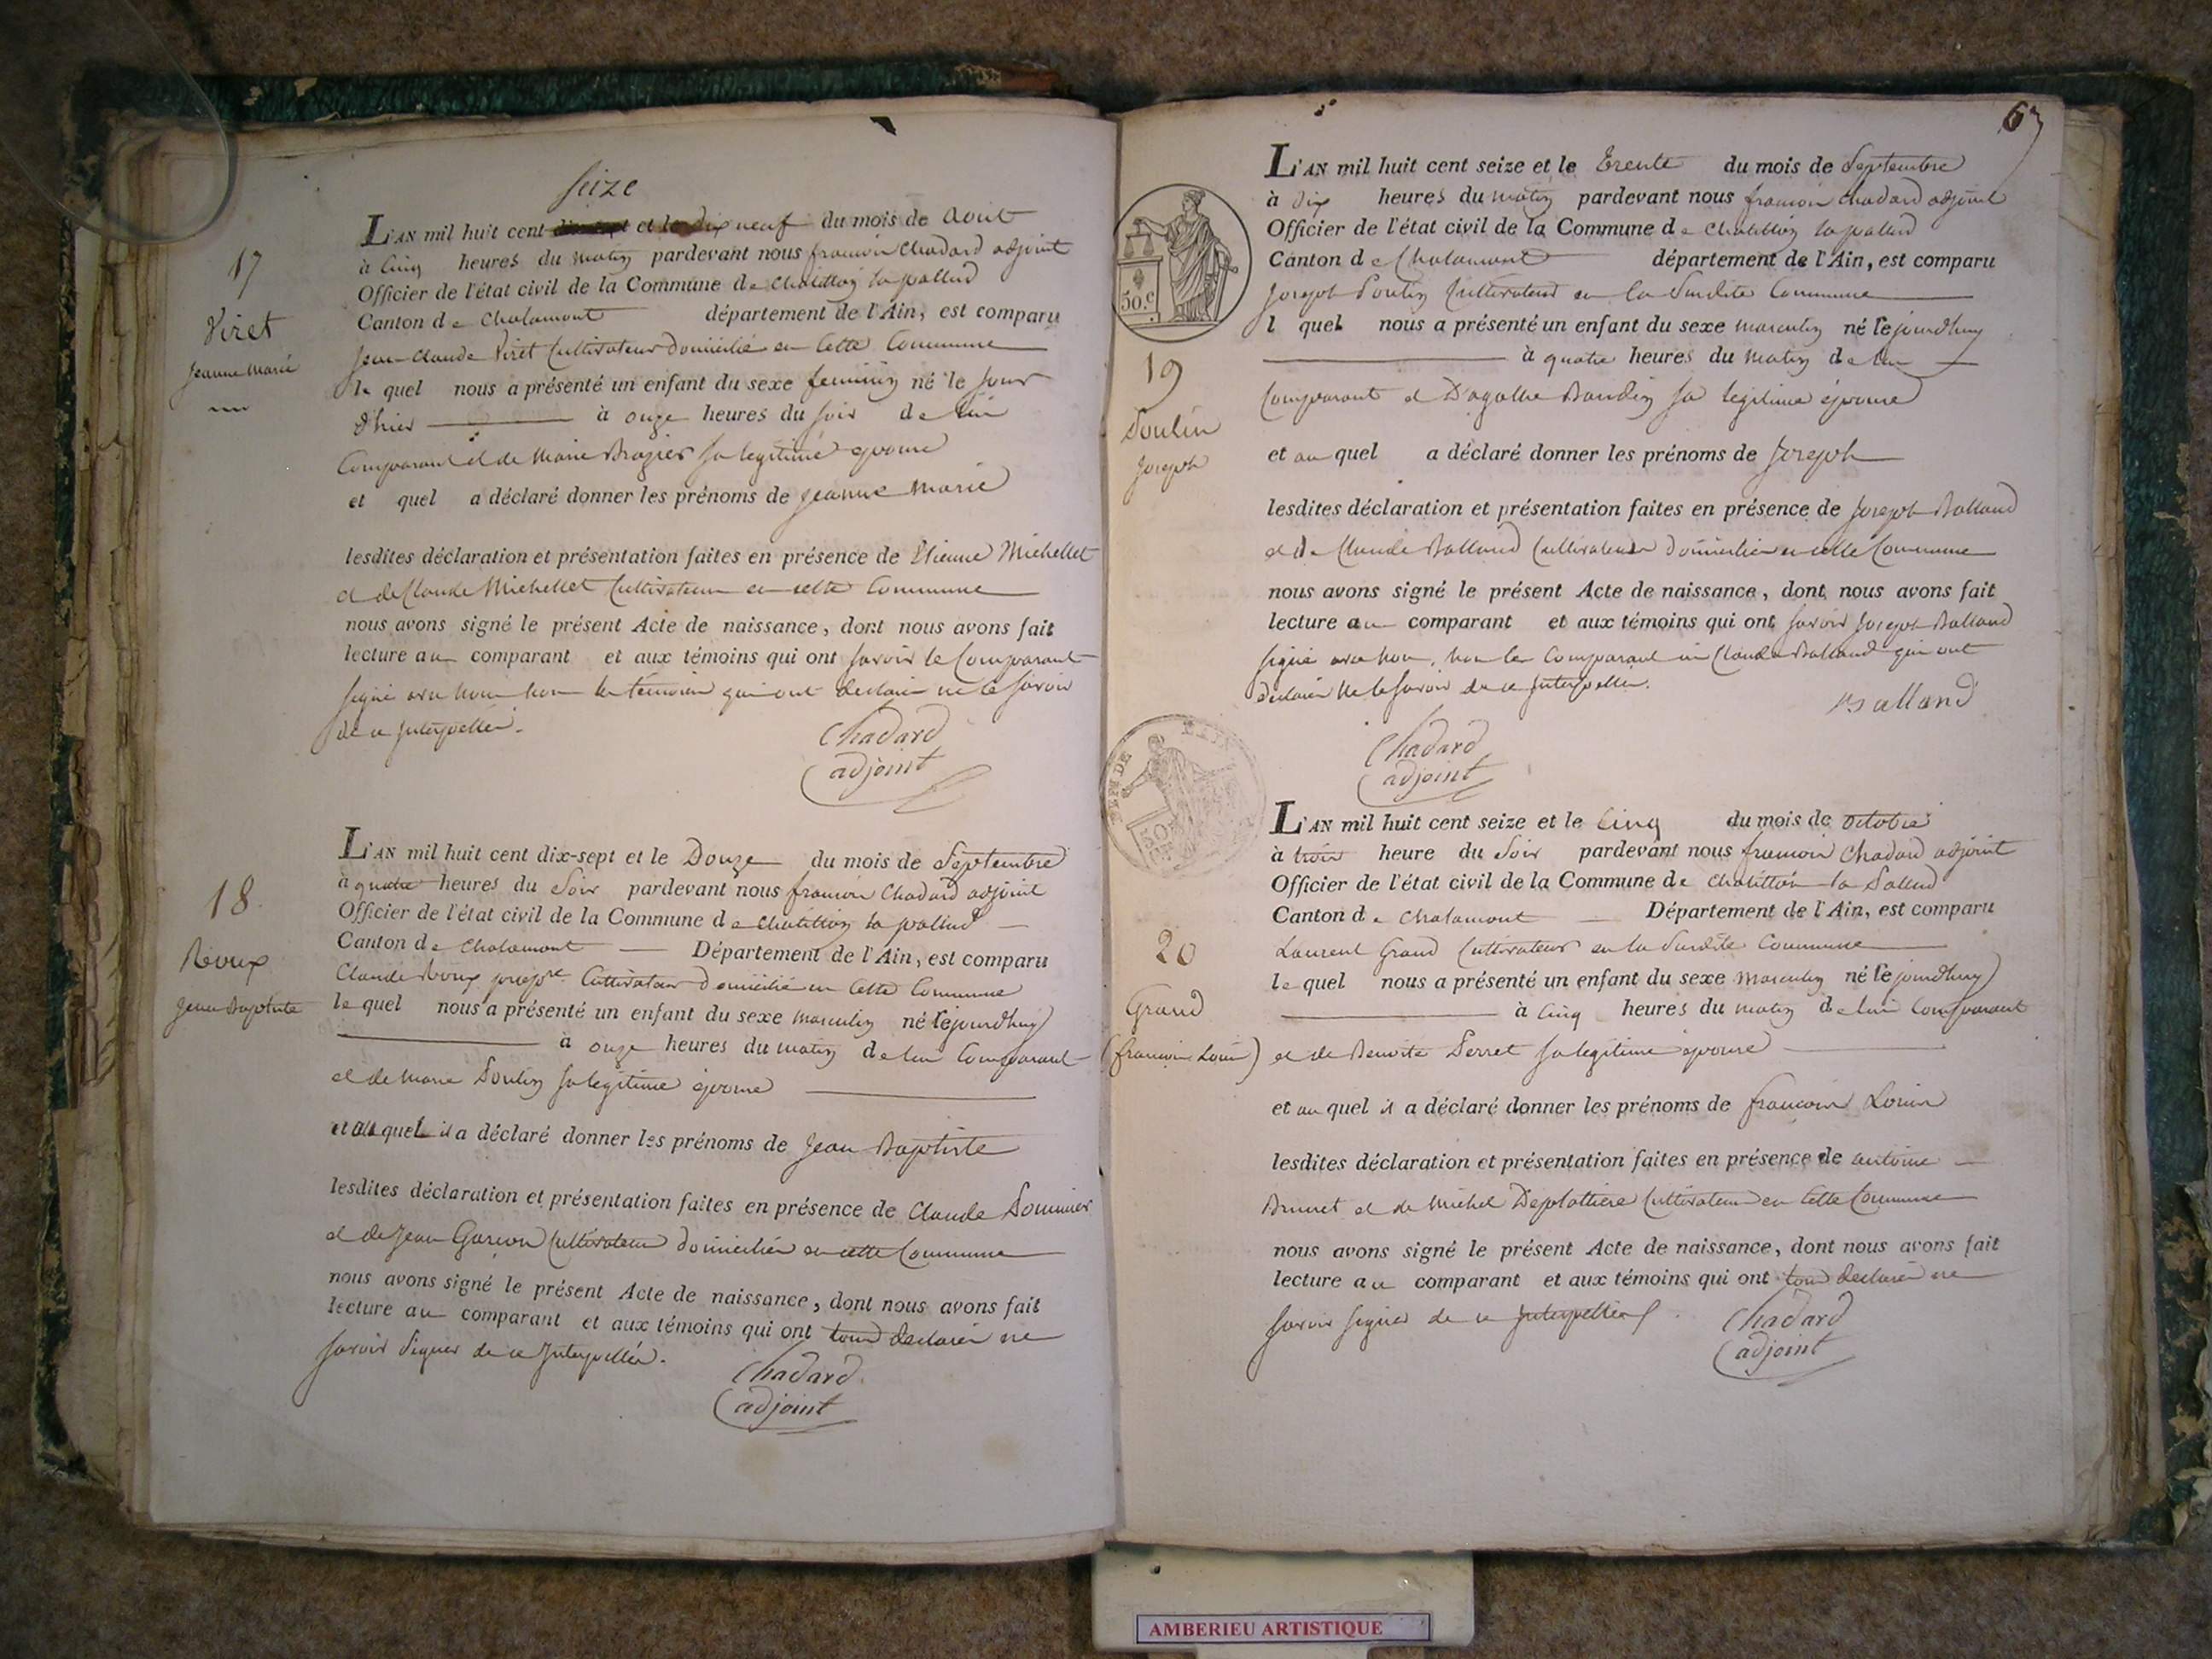 seize
L'AN mil huit cent et le dix neuf du mois de Aout
à Cinq heures du matin pardevant nous francois Chadard adjoint
Officier de l'état civil de la Commune de Chatillon la pallud
Canton de Chalamont département de l'Ain, est comparu
Jean-Claude Viret Cultivateur domicilié en Cette Commune
le quel nous a présenté un enfant du sexe feminin né le jour
d'hier à onze heures du soir de lui
Comparant et de Marie Brazier sa legitime epouse
et quel a déclaré donner les prénoms de jeanne marie
lesdites déclaration et présentation faites en présence de Etienne Michellet
et de Claude Michellet Cultivateurs en cette Commune
nous avons signé le présent Acte de naissance, dont nous avons fait
lecture au comparant et aux témoins qui ont savoir le Comparant
signé avec nous non les témoins qui ont declaré ne le savoir
de ce Interpellés.
Chadard
adjoint
17
Viret
jeanne Marie
L'AN mil huit cent dix-sept et le Douze du mois de Septembre
à quatre heures du Soir pardevant nous francois Chadard adjoint
Officier de l'état civil de la Commune de Chatillon la pallud
Canton de Chalamont Département de l'Ain, est comparu
Claude Roux Cultivateur domicilié en Cette Commune
le quel nous a présenté un enfant du sexe masculin né lejourdhuy
à onze heures du matin de lui Comparant
et de Marie Poulin sa legitime épouse
et au quel il a déclaré donner les prénoms de Jean Baptiste
lesdites déclaration et présentation faites en présence de Claude
et de Jean Garson Cultivateurs domiciliés en cette Commune
nous avons signé le présent Acte de naissance, dont nous avons fait
lecture au comparant et aux témoins qui ont tous declaré ne
savoir Signer de ce Interpellés.
Chadard
adjoint
18
Roux
Jean Baptiste
67
L'AN mil huit cent seize et le Trente du mois de Septembre
à Dix heures du matin pardevant nous francois Chadard adjoint
Officier de l'état civil de la Commune de Chatillon la pallud
Canton de Chalamont département de l'Ain, est comparu
Joseph Poulin Cultivateur en la Susdite Commune
l quel nous a présenté un enfant du sexe masculin né lejourdhuy
à quatre heures du matin de lui
Comparant et D'agathe Baudin sa legitime épouse
et au quel a déclaré donner les prénoms de Joseph
lesdites déclaration et présentation faites en présence de Joseph Balland
et de Claude Balland Cultivateurs domiciliés en cette Commune
nous avons signé le présent Acte de naissance, dont nous avons fait
lecture au comparant et aux témoins qui ont savoir Joseph Balland
signé avec nous, non le Comparant ni Claude Balland qui ont
declaré ne le savoir de ce Interpellés.
Balland
Chadard
adjoint
50.c
19
Poulin
Joseph
L'AN mil huit cent seize et le Cinq du mois de octobre
à trois heure du Soir pardevant nous francois Chadard adjoint
Officier de l'état civil de la Commune de Chatillon la Pallud
Canton de Chalamont Département de l'Ain, est comparu
Laurent Grand Cultivateur en la Susdite Commune
le quel nous a présenté un enfant du sexe Masculin né lejourdhuy
à Cinq heures du matin de lui Comparant
et de Benoite Perret sa legitime épouse
et au quel il a déclaré donner les prénoms de francois Louis
lesdites déclaration et présentation faites en présence de antoine
Brunet et de Michel Deplattiere Cultivateurs en Cette Commune
nous avons signé le présent Acte de naissance, dont nous avons fait
lecture au comparant et aux témoins qui ont tous declaré ne
savoir signer de ce Interpellés.
Chadard
adjoint
20
Grand
(francois Louis)
AMBERIEU ARTISTIQUE